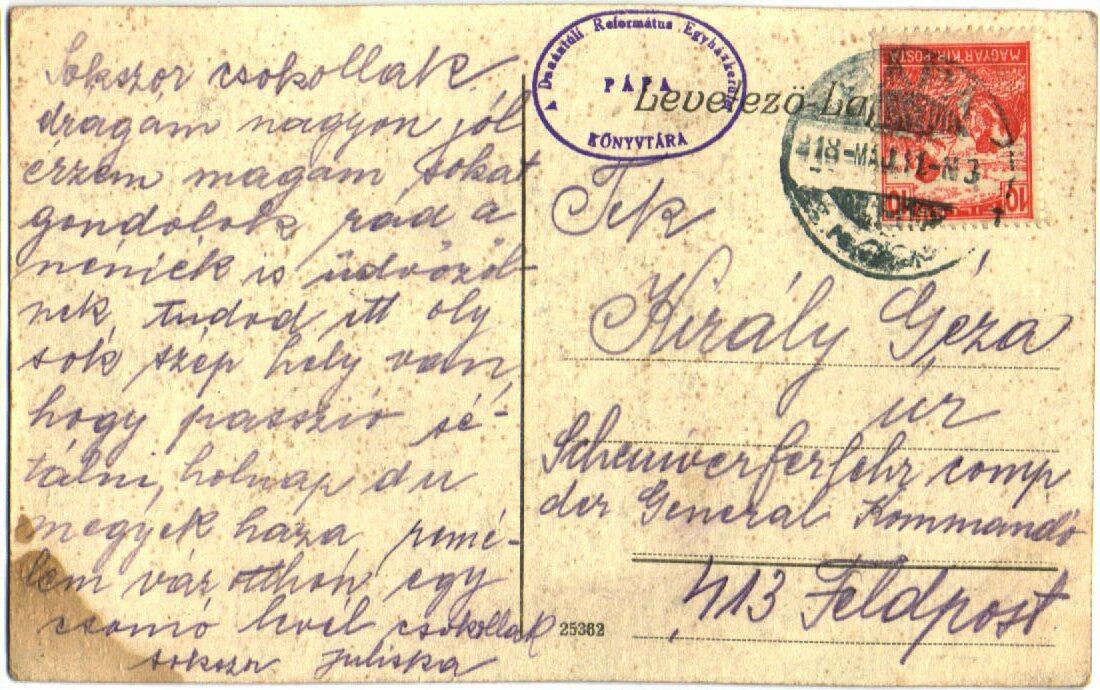 Sokszor csokollak
dragám nagyon jól
érzem magam, sokat
gondolok rád a
néniék is üdvözöl-
nek, tudod itt oly
sok szép hely van,
hogy passzió sé-
tálni, holnap du
megyek haza, remé-
lem vár otthon egy
csomó levél csokollak
sokszor Juliska
A Dunántúli Református Egyházkerület
PÁPA
KÖNYVTÁRA
Levelező-Lap
MAGYAR KIR. POSTA
10
10
918-MAJ.11-N3
Tek
Király Géza
úr
Scheinwerferfelhr comp
der General Kommando
413 Feldpost
25362